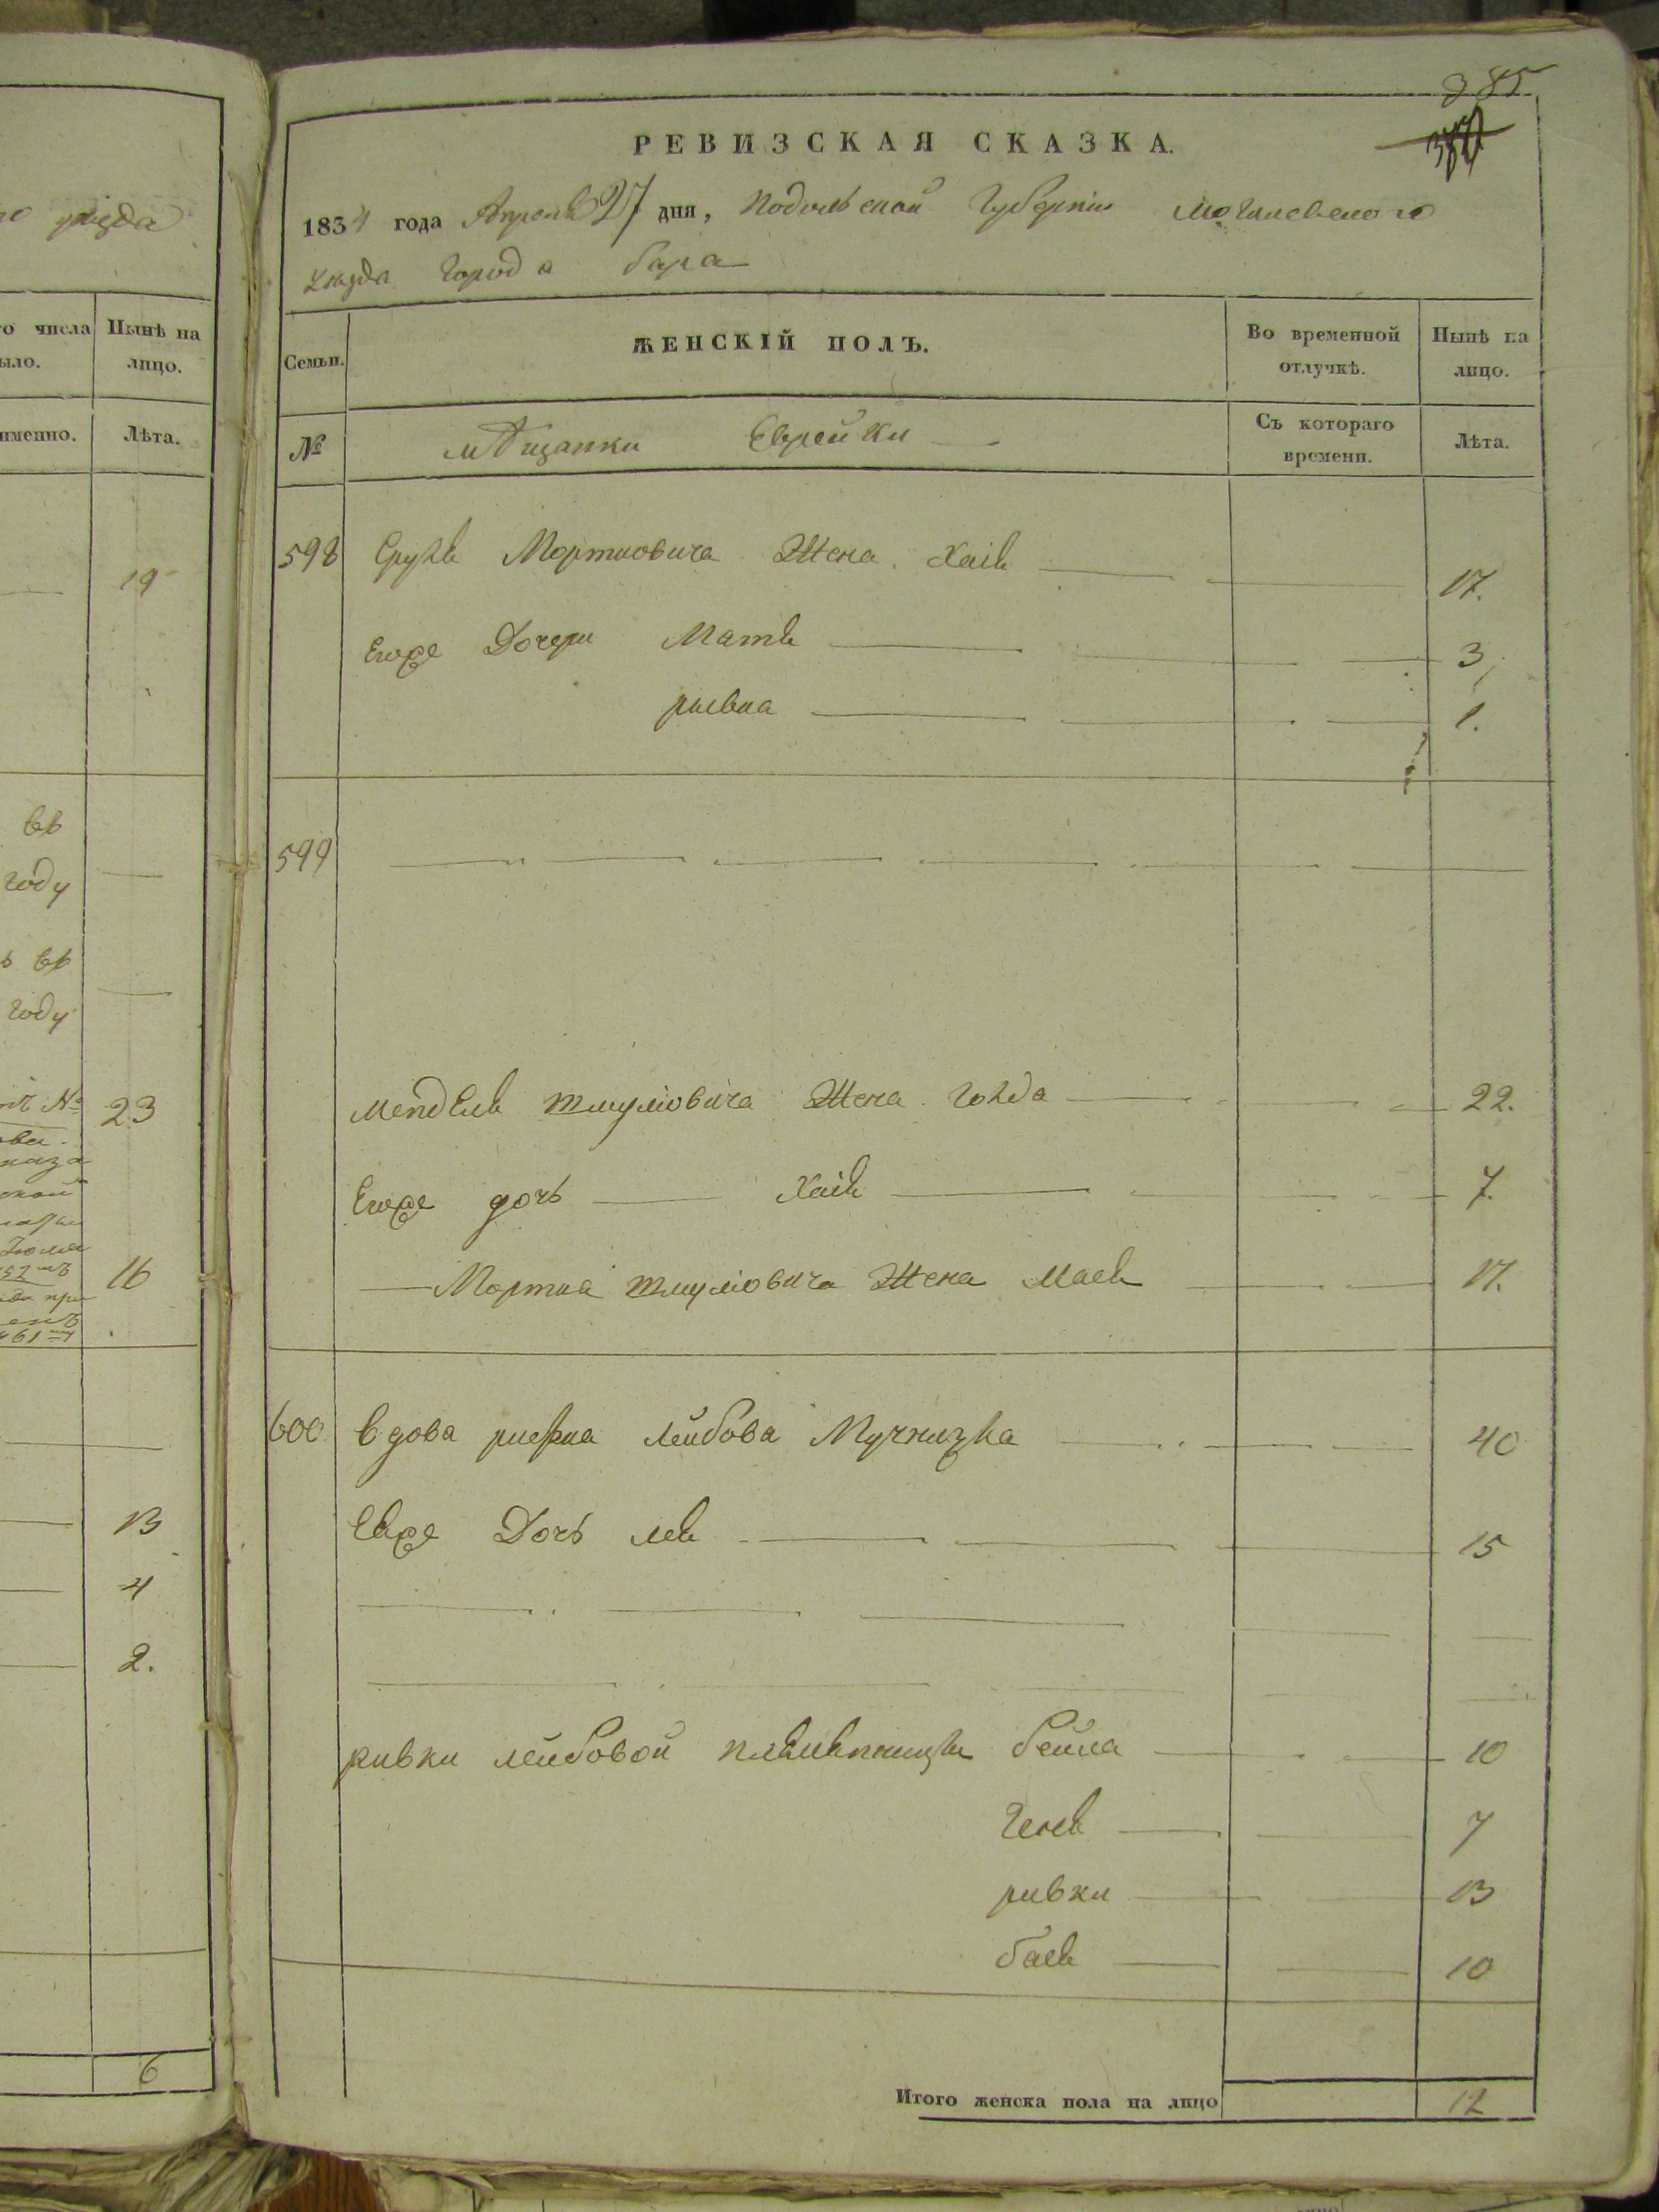 го уѣзда
го числа
ыло.
Нынѣ на
лицо.
именно.
Лѣта.
19
въ
году
ъ въ
году
23
16
13
4
2.
6
385
РЕВИЗСКАЯ СКАЗКА.
1834 года Апреля 27 дня, Подольской Губерніи Могилевского
уѣзда Города Бара
Семьи.
ЖЕНСКІЙ ПОЛЪ.
Во временной
отлучкѣ.
Нынѣ на
лицо.
№
мѣщанки Еврейки
Съ котораго
времени.
Лѣта.
598 Сруля Мортковича Жена Хаія 17.
Егоже Дочери Матля 3
ривка 1.
599
Менделя Шмулiовича Жена Голда 22.
Егоже дочь Хаія 7.
Мортка Шмулiовича Жена Маля 17.
600 вдова ривка лейбова Мучницка 40
Еяже Дочь лея 15
ривки лейбовой племянницы бейла 10
Геня 7
ривки 13
бася 10
Итого женска пола на лицо 12